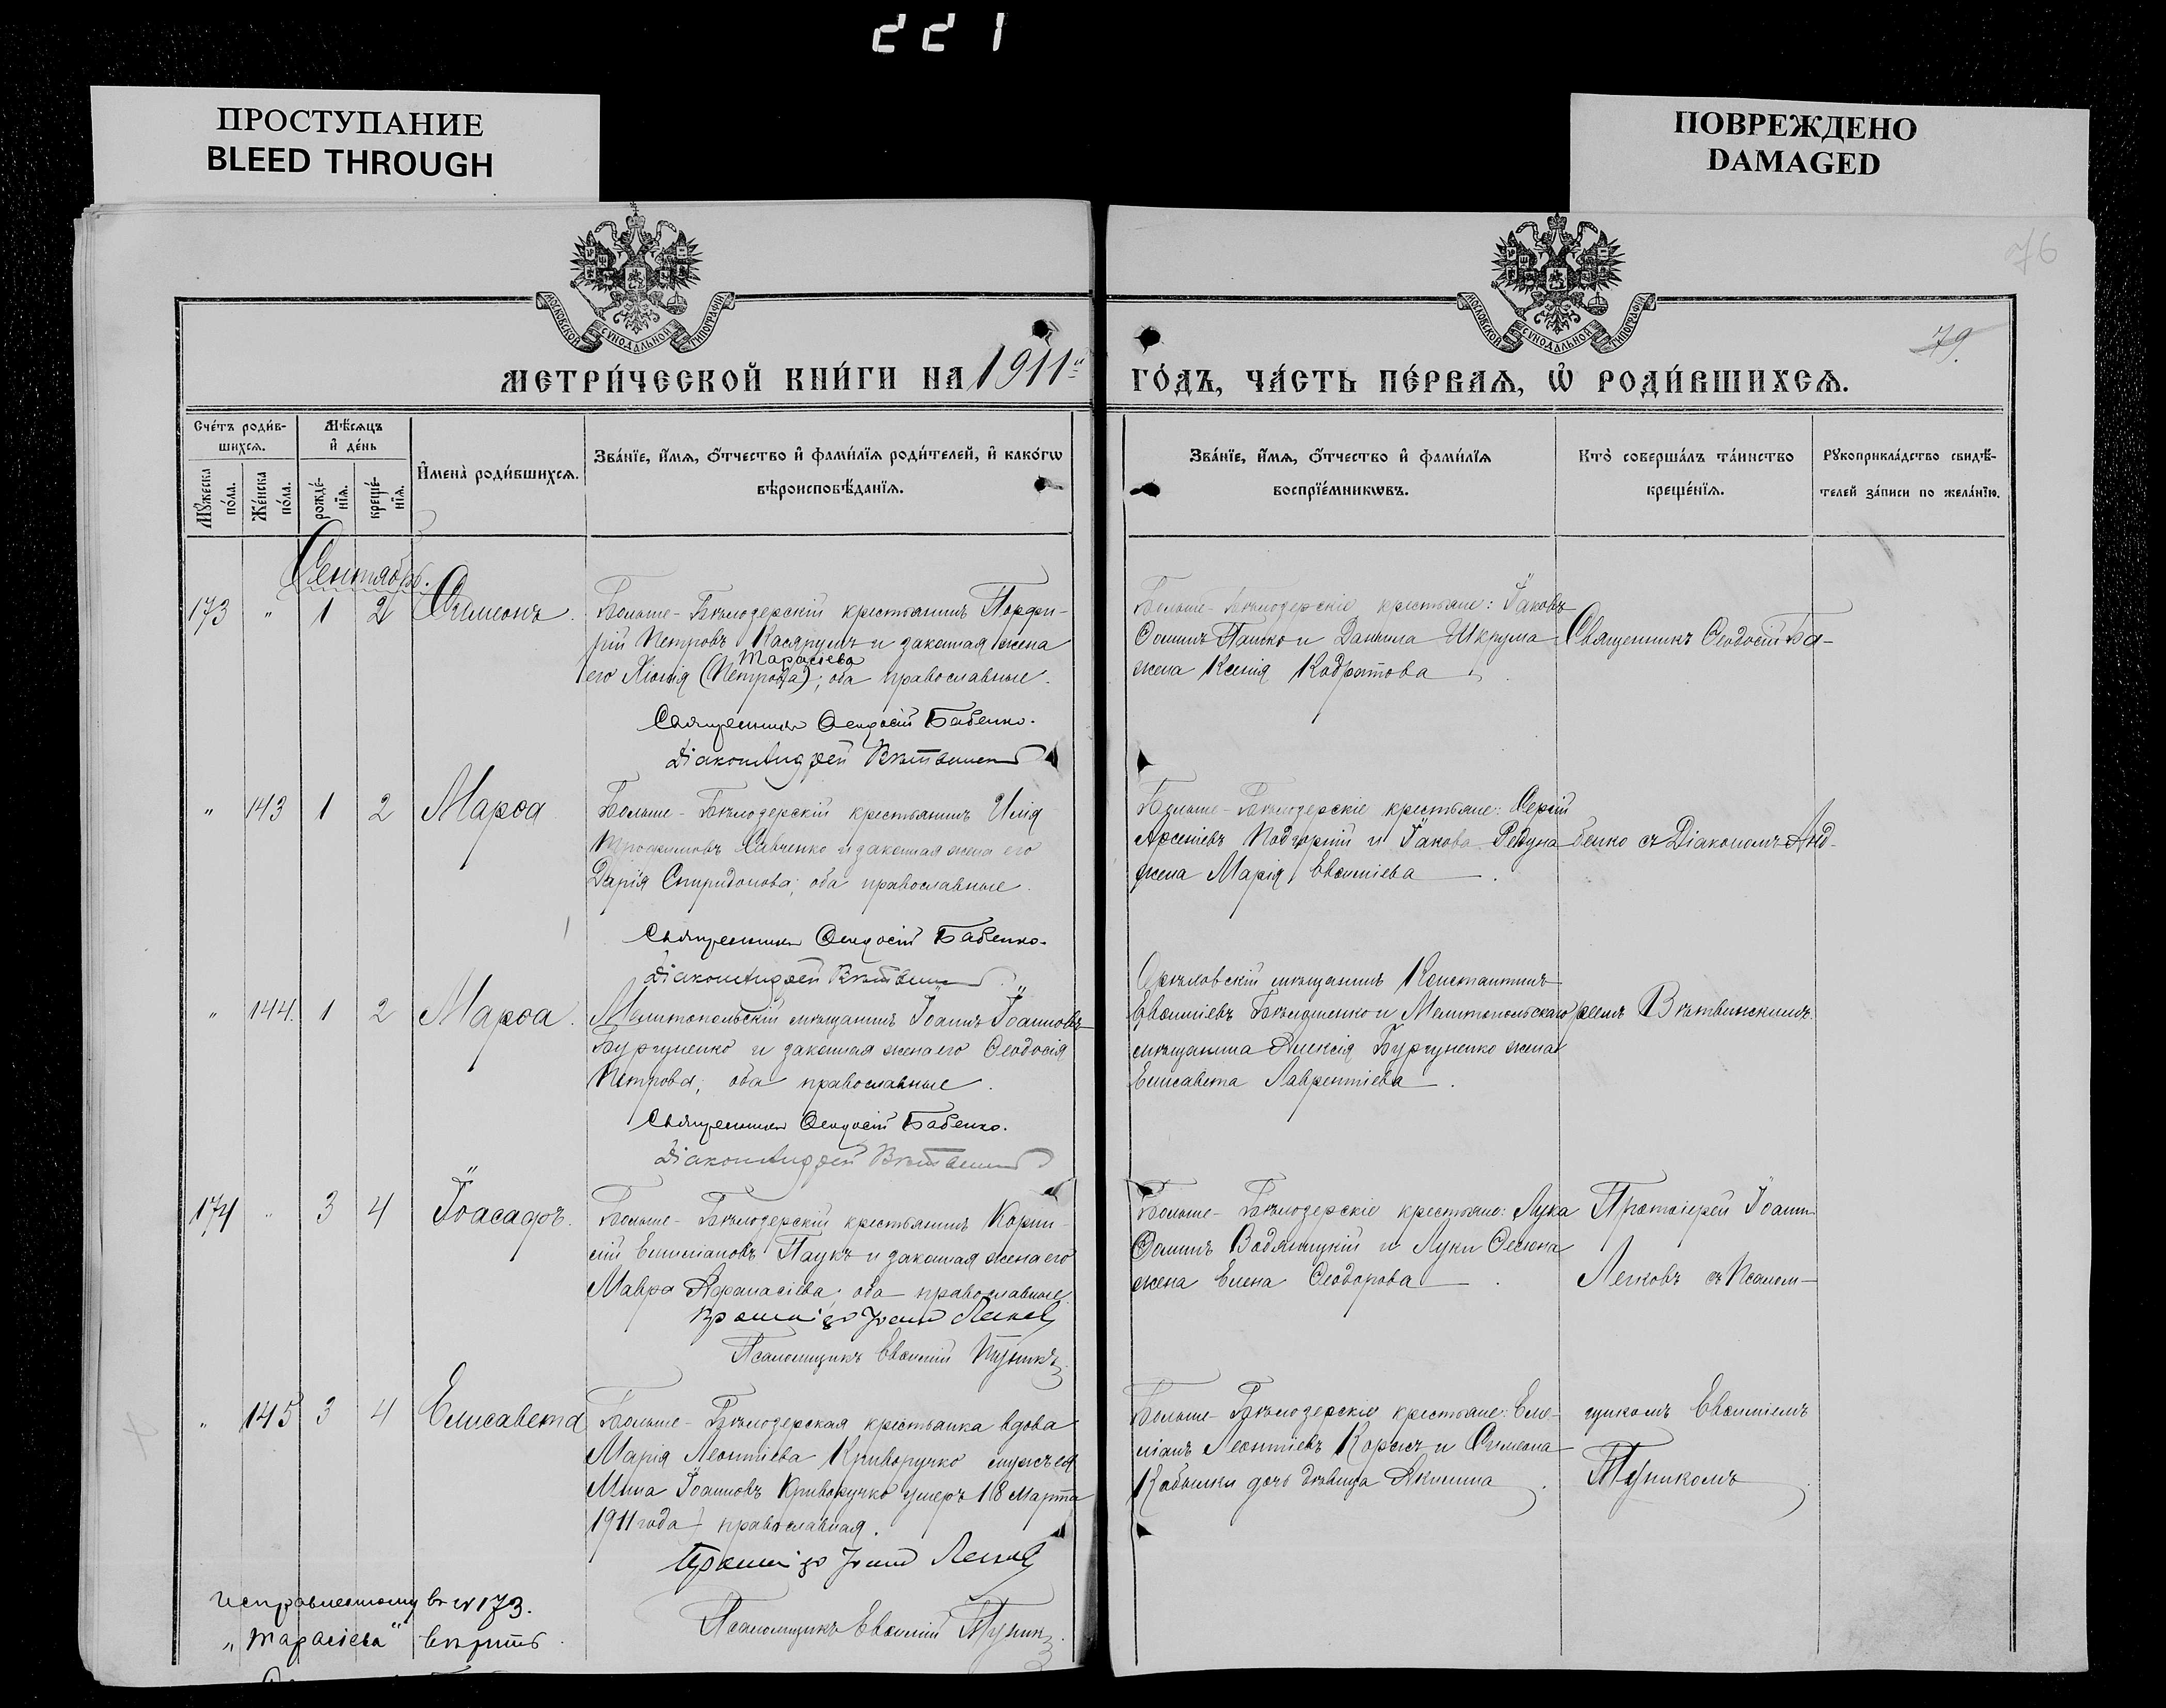 221
ПРОСТУПАНИЕ
BLEED THROUGH
ПОВРЕЖДЕНО
DAMAGED
76
МОСКОВСКОЙ СУНОДАЛЬНОЙ ТИПОГРАФІИ
МОСКОВСКОЙ СУНОДАЛЬНОЙ ТИПОГРАФІИ
79
МЕТРИ́ЧЕСКОЙ КНИ́ГИ НА 1911й
ГО́ДЪ, ЧА́СТЬ ПЕ́РВАѦ, Ѡ҆ РОДИ́ВШИХСѦ.
Сче́тъ роди́вшихсѧ.
Мꙋ́жеска по́ла.
Же́нска по́ла.
Мѣ́сѧцъ и҆ де́нь
рожде́нїѧ.
креще́нїѧ.
И҆мена̀ роди́вшихсѧ.
Зва́нїе, и҆́мѧ, ѻ҆́тчество и҆ фами́лїѧ роди́телей, и҆ како́гѡ
вѣроисповѣ́данїѧ.
Зва́нїе, и҆́мѧ, ѻ҆́тчество и҆ фами́лїѧ
воспрїе́мникѡвъ.
Кто̀ соверша́лъ та́инство
креще́нїѧ.
Рꙋкоприкла́дство свидѣ́-
телей за́писи по жела́нїю.
Сентябрь.
173 " 1 2 Симеонъ.
Больше-Бѣлозерскій крестьянинъ Порфи-
рій Петровъ и законная жена
Тарасіева
его (Петрова); оба православные.
Священникъ Ѳеодосій Бабенко.
Діаконъ Андрей Вѣтвинскій
Больше-Бѣлозерскіе крестьяне: Іаковъ
Ѳоминъ Пашко и Даніила Шкрума
жена Ксенія Кодратова
Священникъ Ѳеодосій Ба-
" 143 1 2 Марѳа
Больше-Бѣлозерскій крестьянинъ Илія
Трофимовъ Савченко и законная жена его
Дарія Спиридонова; оба православные.
Священникъ Ѳеодосій Бабенко.
Діаконъ Андрей Вѣтвинскій
Больше-Бѣлозерскіе крестьяне: Сергій
Арсеніевъ Подгорній и Іакова Редуна
жена Марія Евѳиміева.
бенко съ Діакономъ Анд-
" 144. 1 2 Марѳа.
Мелитопольскій мѣщанинъ Іоаннъ Іоанновъ
Бургуненко и законная жена его Ѳеодосія
Петрова; оба православные.
Священникъ Ѳеодосій Бабенко.
Діаконъ Андрей Вѣтвинскій
Орѣховскій мѣщанинъ Константинъ
Евѳиміевъ и Мелитопольскаго
мѣщанина Алексія Бургуненко жена
Елисавета Лаврентіева.
реемъ Вѣтвинскимъ.
174 " 3 4 Іоасафъ.
Больше-Бѣлозерскій крестьянинъ Корни-
лій Емиліановъ Паукъ и законная жена его
Мавра Аѳанасіева; оба православные.
Протоіерей Іоаннъ Легковъ
Псаломщикъ Евѳимій Пуникъ
Больше-Бѣлозерскіе крестьяне: Лука
Ѳоминъ Водяницкій и Луки
жена Елена Ѳеодорова.
Протоіерей Іоаннъ
Легковъ съ Псалом-
" 145 3 4 Елисавета
Больше-Бѣлозерская крестьянка вдова
Марія Леонтіева Криворучко мужъ ея
Мина Іоанновъ Криворучко умеръ 18 Марта
1911 года) православная.
Протоіерей Іоаннъ Легковъ
Псаломщикъ Евѳимій Пуникъ.
Больше-Бѣлозерскіе крестьяне: Еми-
ліанъ Леонтіевъ Коржъ и Симеона
Кобылки дочь дѣвица Акилина.
щикомъ Евѳиміемъ
Пуникомъ
исправленному въ № 173.
„Тарасіева" вѣрить.